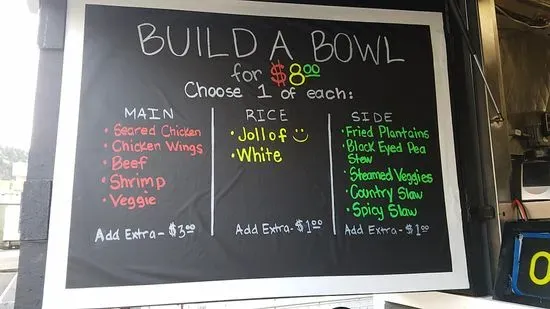 BUILD A BOWL
for $8.00
Choose 1 of each:
MAIN
• Seared Chicken
• Chicken Wings
• Beef
• Shrimp
• Veggie
Add Extra - $3.00
RICE
• Jollof
• White
Add Extra - $1.00
SIDE
• Fried Plantains
• Black Eyed Pea
Stew
• Steamed Veggies
• Country Slaw
• Spicy Slaw
Add Extra - $1.00